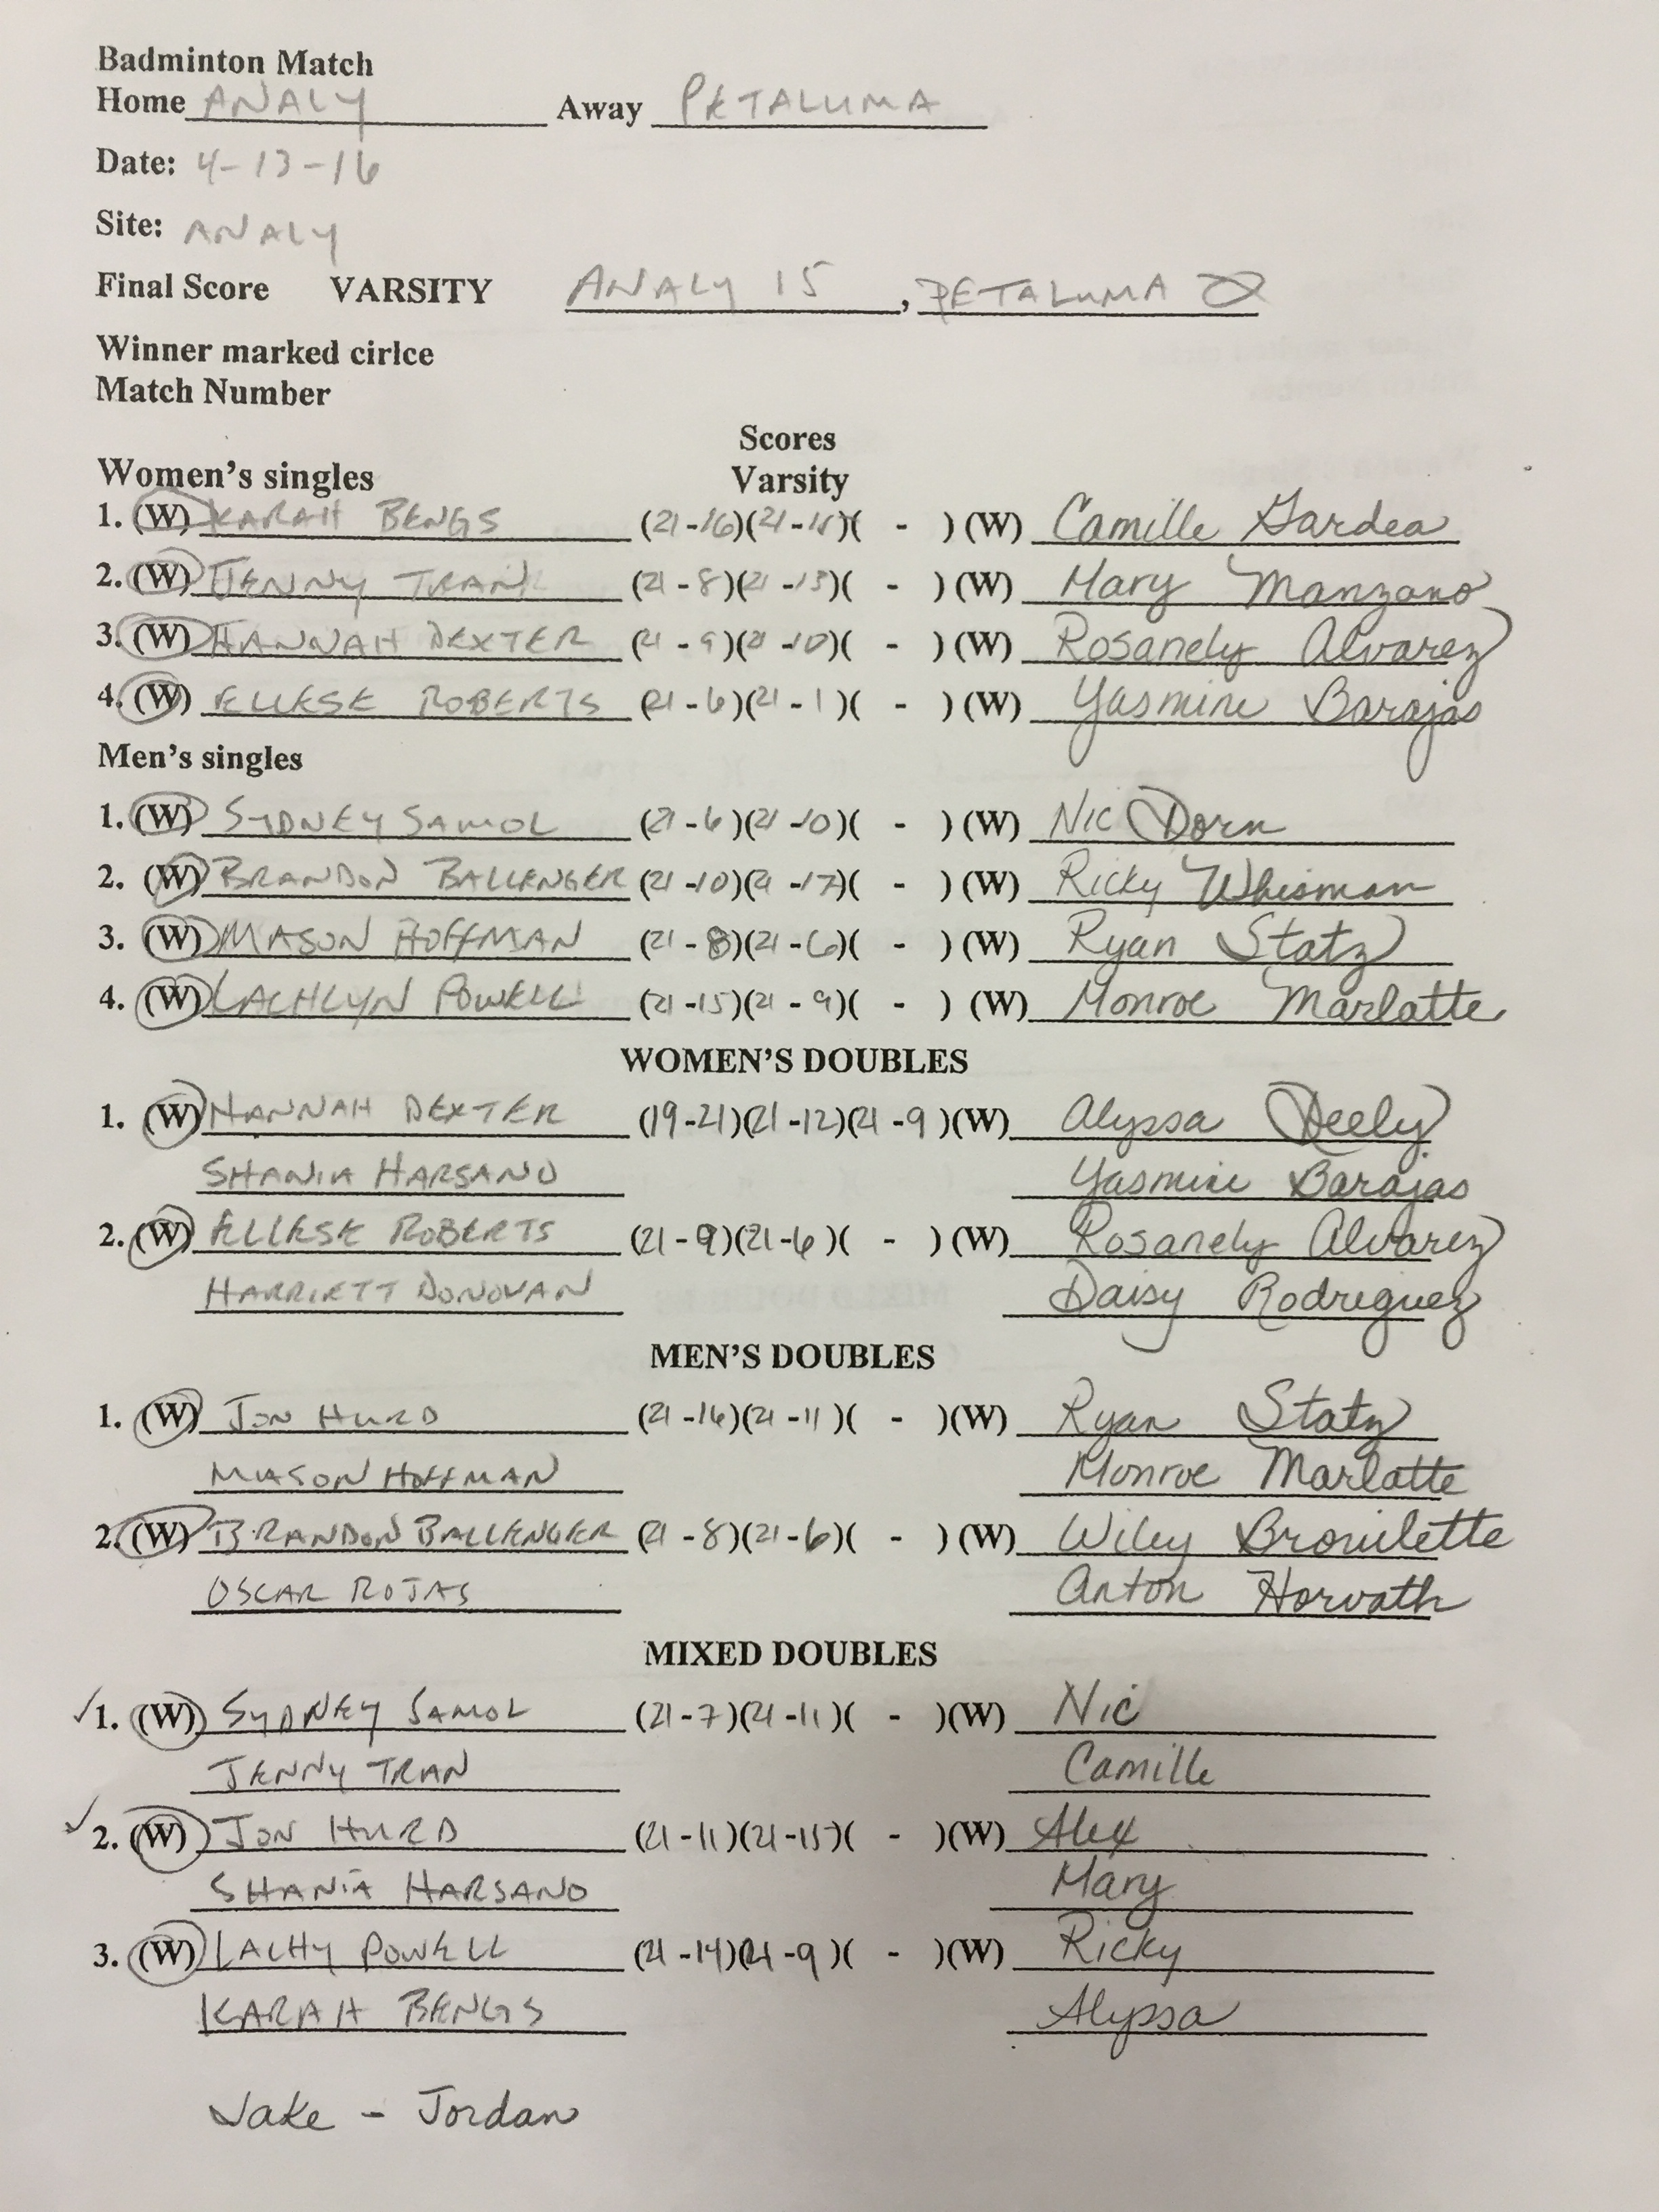 Badminton Match
Home ANALY Away PETALUMA
Date: 4-13-16
Site: ANALY
Final Score VARSITY ANALY 15, PETALUMA 0
Winner marked cirlce
Match Number
Scores
Women's singles Varsity
1. (W) KARAH BENGS (21-16)(21- )( - ) (W) Camille Gardea
2. (W) JENNY TRAN (21-8)(21-13)( - ) (W) Mary Manzano
3. (W) HANNAH DEXTER (21-9)(21-10)( - ) (W) Rosanely Alvarez
4. (W) ELLESE ROBERTS (21-6)(21-1)( - ) (W) Yasmine Barajas
Men's singles
1. (W) SYDNEY SAMOL (21-6)(21-10)( - ) (W) Nic Dorn
2. (W) BRANDON BALLENGER (21-10)(21-17)( - ) (W) Ricky Whisman
3. (W) MASON HOFFMAN (21-8)(21-6)( - ) (W) Ryan Statz
4. (W) LACHLYN POWELL (21-15)(21-9)( - ) (W) Monroe Marlatte
WOMEN'S DOUBLES
1. (W) HANNAH DEXTER (19-21)(21-12)(21-9)(W) Alyssa Deely
SHANIA HARSANO Yasmine Barajas
2. (W) ELLESE ROBERTS (21-9)(21-6)( - ) (W) Rosanely Alvarez
HARRIETT DONOVAN Daisy Rodriguez
MEN'S DOUBLES
1. (W) JON HURD (21-16)(21-11)( - )(W) Ryan Statz
MASON HOFFMAN Monroe Marlatte
2. (W) BRANDON BALLENGER (21-8)(21-6)( - ) (W) Wiley Brouilette
OSCAR ROJAS Anton Horvath
MIXED DOUBLES
✓1. (W) SYDNEY SAMOL (21-7)(21-11)( - )(W) Nic
JENNY TRAN Camille
✓2. (W) JON HURD (21-11)(21-15)( - )(W) Alex
SHANIA HARSANO Mary
3. (W) LACHY POWELL (21-14)(21-9)( - )(W) Ricky
KARAH BENGS Alyssa
Jake - Jordan